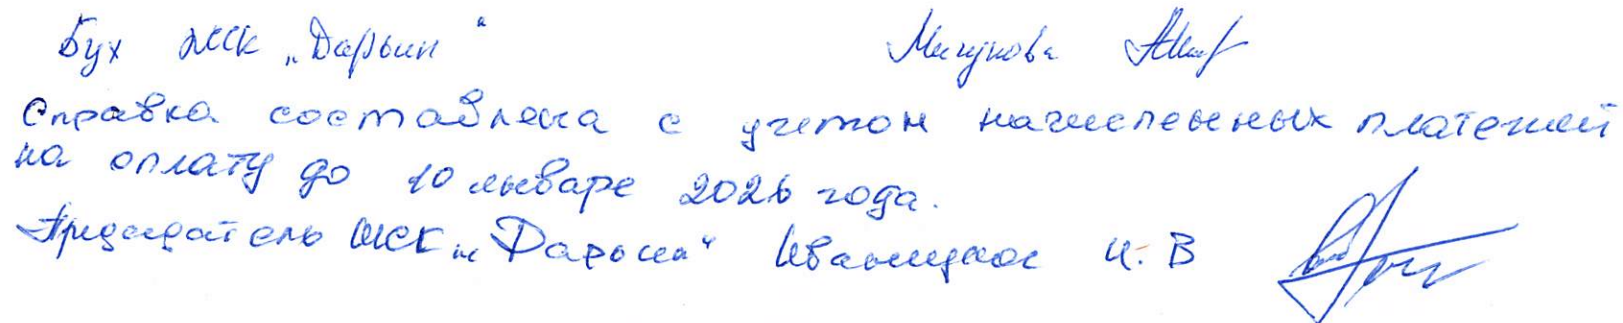 Бух ЖСК „Дарьин“ Мигунова
Справка составлена с учетом начисленных платежей
на оплату до 10 январе 2026 года.
Председатель ЖСК „Дарьин“ И.В